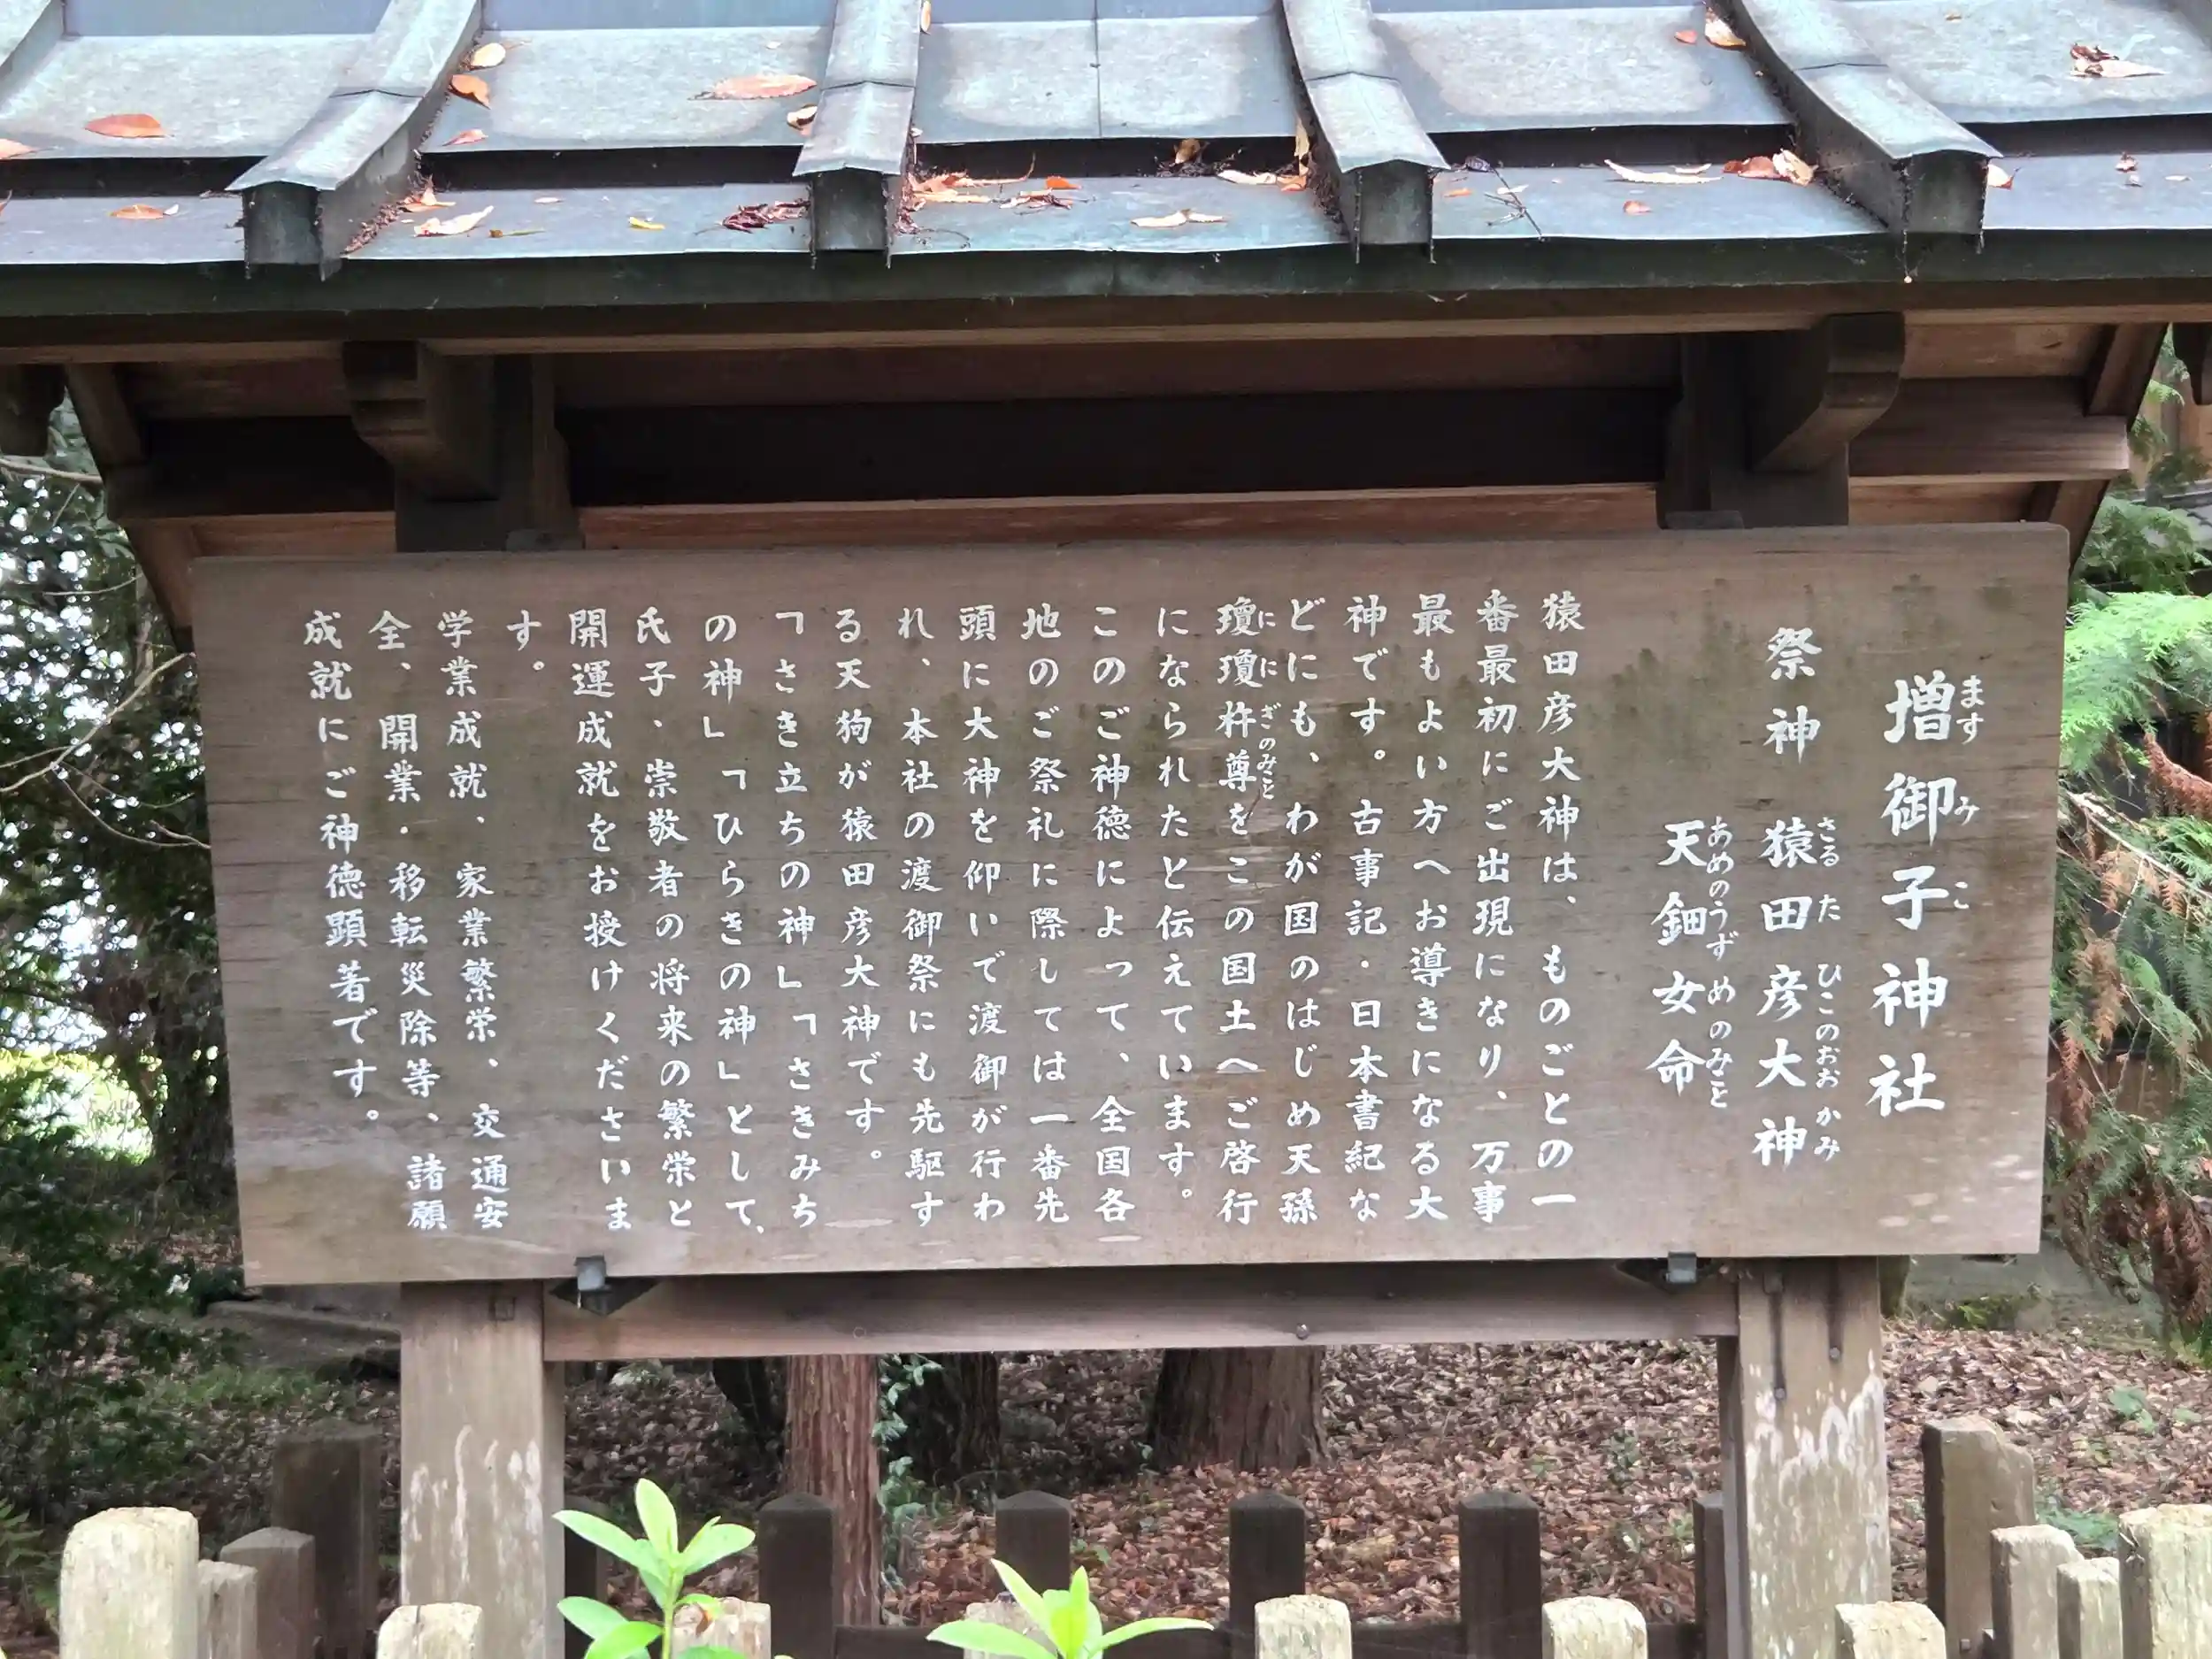 増御子神社
ますみこ
祭神 猿田彦大神
さるたひこのおおかみ
天鈿女命
あめのうずめのみこと
猿田彦大神は、ものごとの一
番最初にご出現になり、万事
最もよい方へお導きになる大
神です。古事記・日本書紀な
どにも、わが国のはじめ天孫
瓊瓊杵尊をこの国土へご啓行
ににぎのみこと
になられたと伝えています。
このご神徳によって、全国各
地のご祭礼に際しては一番先
頭に大神を仰いで渡御が行わ
れ、本社の渡御祭にも先駆す
る天狗が猿田彦大神です。
「さき立ちの神」「さきみち
の神」「ひらきの神」として、
氏子・崇敬者の将来の繁栄と
開運成就をお授けくださいま
す。
学業成就、家業繁栄、交通安
全、開業・移転災除等、諸願
成就にご神徳顕著です。